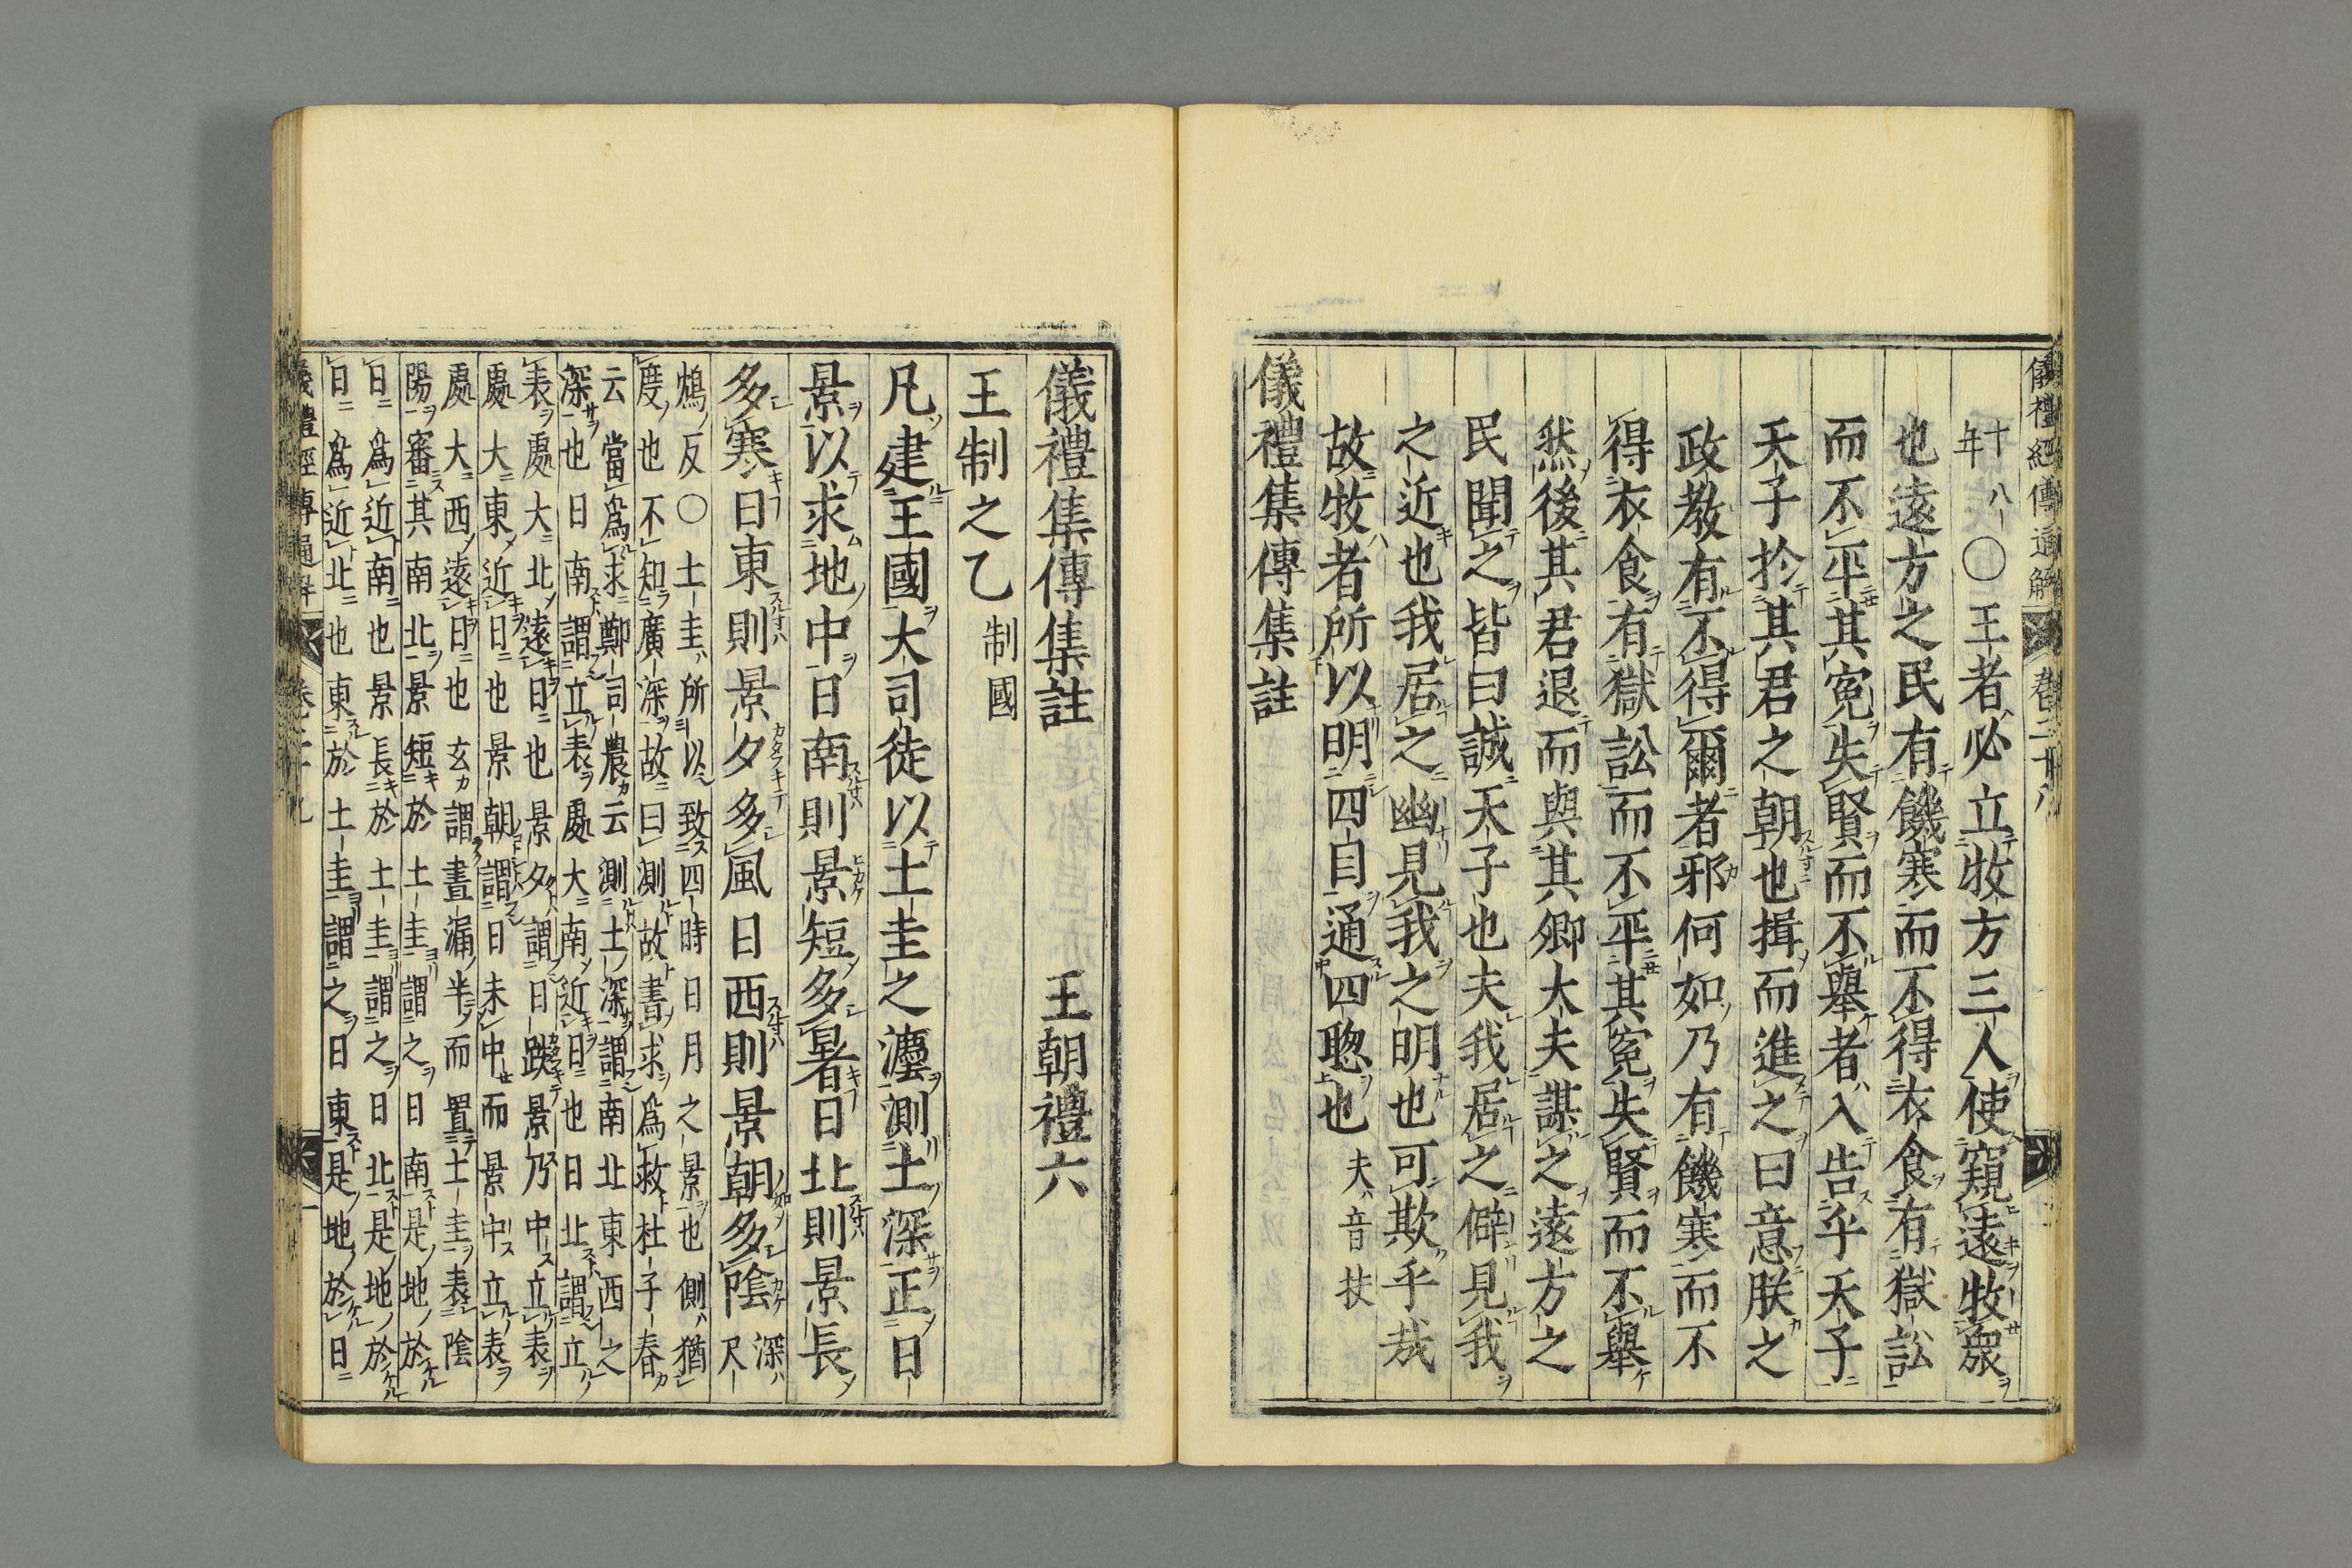 儀禮經傳通解 卷二十八
十八年〇王者必立牧方三人使窺遠牧衆
也遠方之民有饑寒而不得衣食有獄訟
而不平其冤失賢而不舉者入告乎天子
天子於其君之朝也揖而進之曰意朕之
政教有不得爾者邪何如乃有饑寒而不
得衣食有獄訟而不平其冤失賢而不舉
然後其君退而與其卿大夫謀之遠方之
民聞之皆曰誠天子也夫我居之僻見我
之近也我居之幽見我之明也可欺乎哉
故牧者所以明四目通四聰也 夫音扶
儀禮集傳集註
儀禮集傳集註 王朝禮六
王制之乙 制國
凡建王國大司徒以土圭之灋測土深正日
景以求地中日南則景短多暑日北則景長
多寒日東則景夕多風日西則景朝多陰 深尺
鴆反〇土圭所以致四時日月之景也側猶
度也不知廣深故曰測故書求爲救杜子春
云當爲求鄭司農云測土深謂南北東西之
深也日南謂立表處大南近日也日北謂立
表處大北遠日也景夕謂日跌景乃中立表
處大東近日也景朝謂日未中而景中立表
處大西遠日也玄謂晝漏半而置土圭表陰
陽審其南北景短於土圭謂之日南是地於
日爲近南也景長於土圭謂之日北是地於
日爲近北也東於土圭謂之日東是地於日